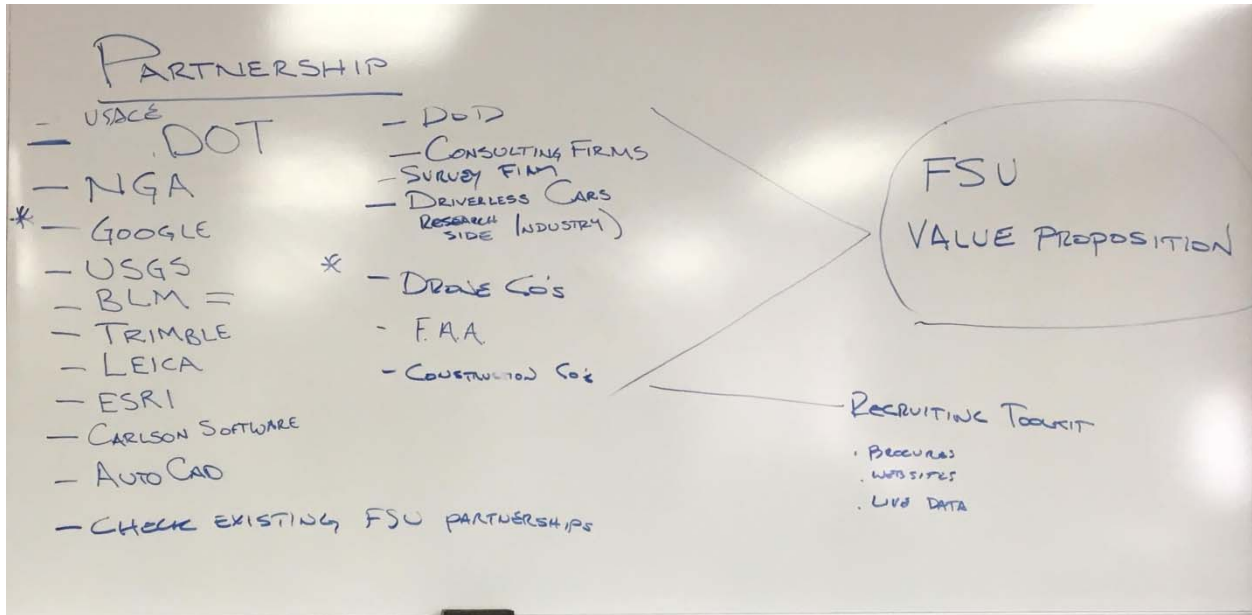 PARTNERSHIP
- USACE
- DOT
- NGA
* - GOOGLE
- USGS
- BLM =
- TRIMBLE
- LEICA
- ESRI
- CARLSON SOFTWARE
- AUTO CAD
- CHECK EXISTING FSU PARTNERSHIPS
- DOD
- CONSULTING FIRMS
- SURVEY FIRM
- DRIVERLESS CARS
RESEARCH INDUSTRY)
SIDE
* - DRONE CO'S
- F.A.A.
- CONSTRUCTION CO'S
FSU
VALUE PROPOSITION
RECRUITING TOOLKIT
. BROCURES
. WEBSITES
. LIVE DATA